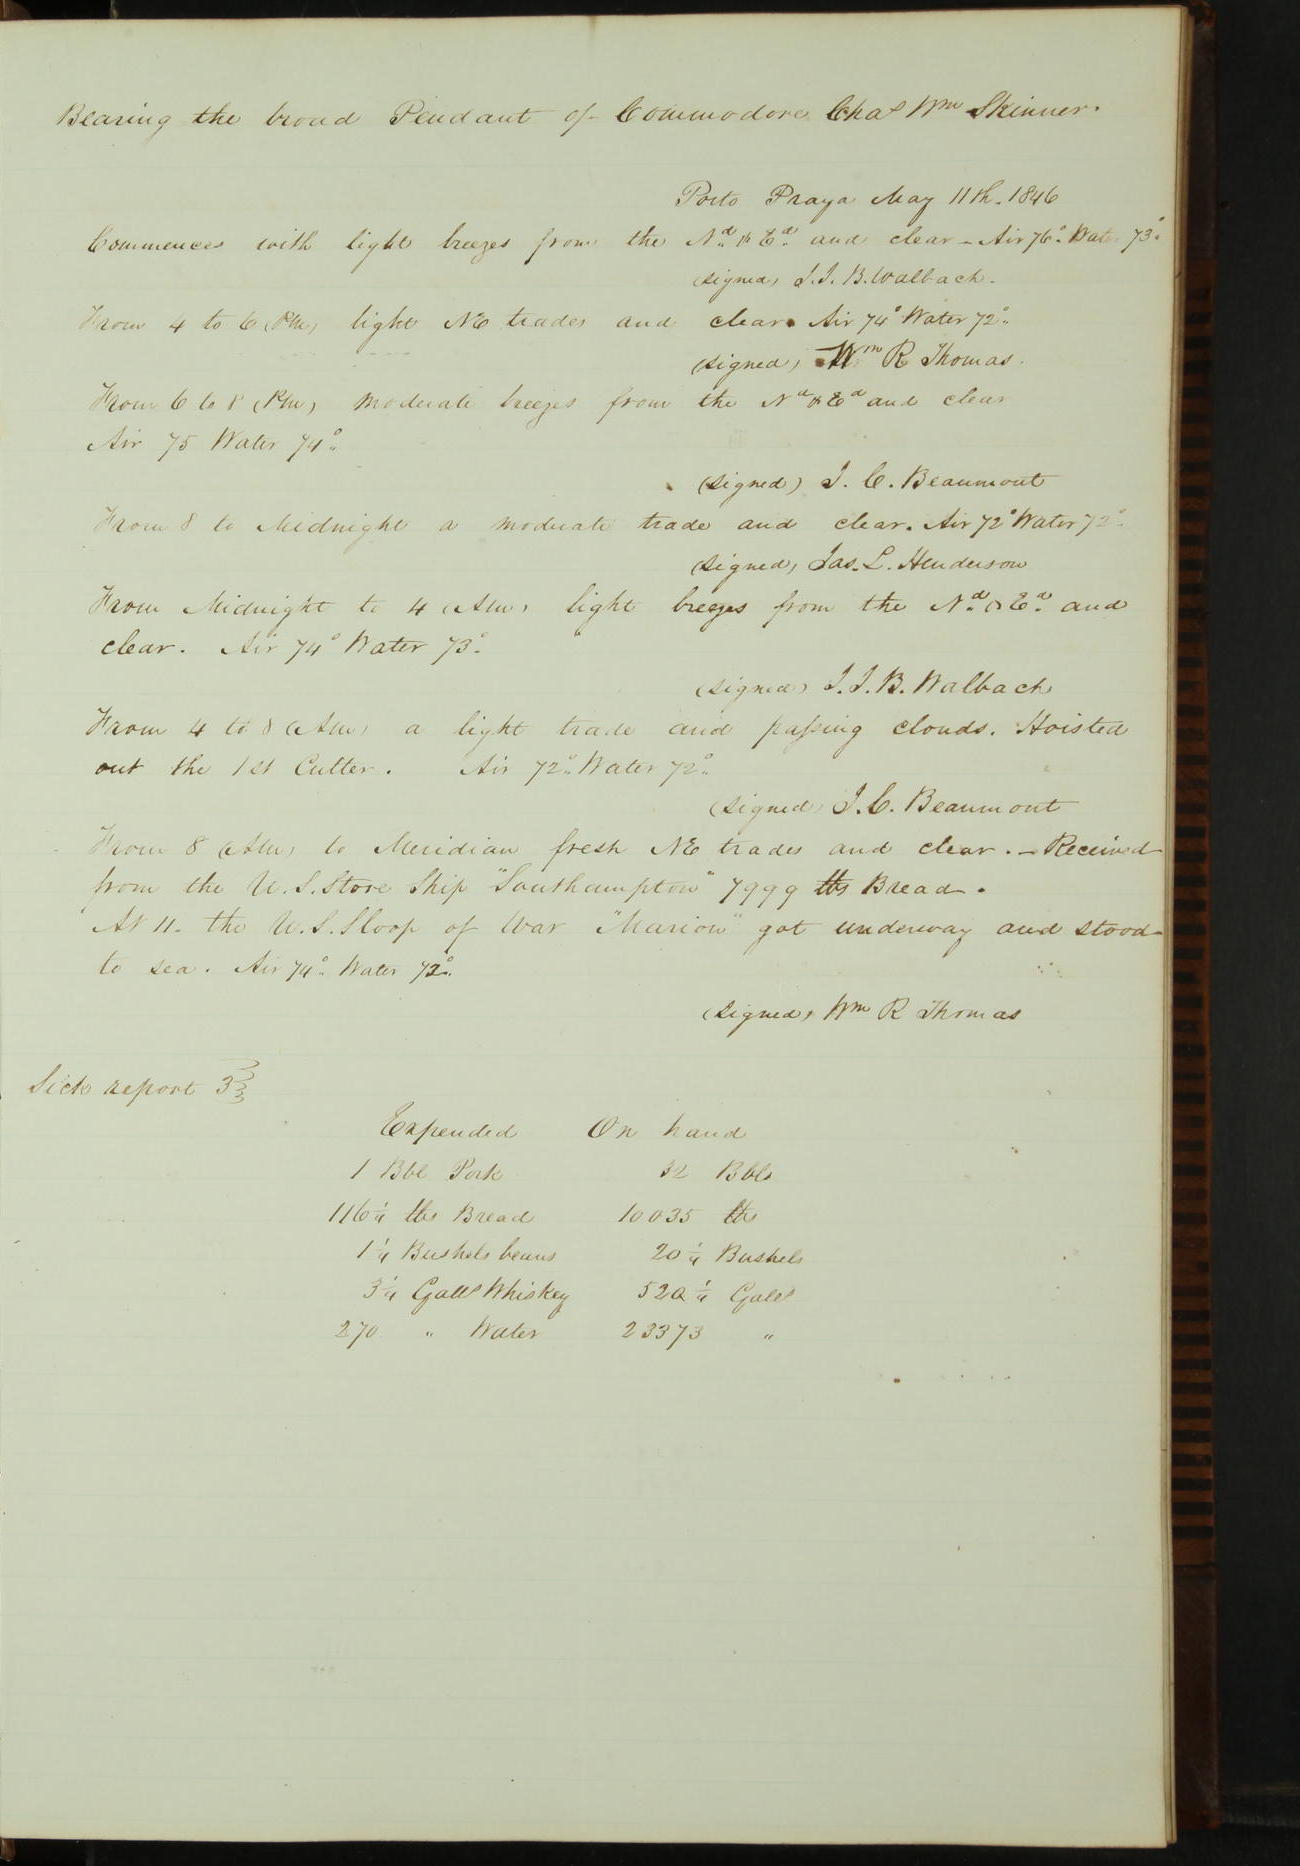 Bearing the broad Pendant of Commodore Chas Wm Skinner.
Porto Praya May 11th. 1846
Commences with light breezes from the Nd & Ed and clear - Air 76° Water 73°
(signed) J.J.B. Walbach.
From 4 to 6 (PM) light NE trades and clear. Air 74° Water 72°
(signed) Wm R Thomas.
From 6 to 8 (PM) moderate breezes from the Nd & Ed and clear
Air 75 Water 74°
(signed) J. C. Beaumont
From 8 to Midnight a moderate trade and clear. Air 72° Water 72°
(signed) Jas. L. Henderson
From Midnight to 4 (AM) light breezes from the Nd & Ed and
clear. Air 74° Water 73°
(signed) J.J.B. Walbach
From 4 to 8 (AM) a light trade and passing clouds. Hoisted
out the 1st Cutter. Air 72° Water 72°
(signed) J.C. Beaumont
From 8 (AM) to Meridian fresh NE trades and clear. - Received
from the U.S. Store Ship "Southampton" 7999 lbs Bread.
At 11. the U.S. Sloop of War "Marion" got underway and stood
to sea. Air 74° Water 72°
(signed) Wm R Thomas
Sick report 3
Expended On hand
1 Bbl Pork 32 Bbls
116 1/4 lbs Bread 10035 lbs
1 1/4 Bushels beans 20 1/4 Bushels
3 1/4 Galls Whiskey 520 1/4 Galls
270 " Water 23373 "